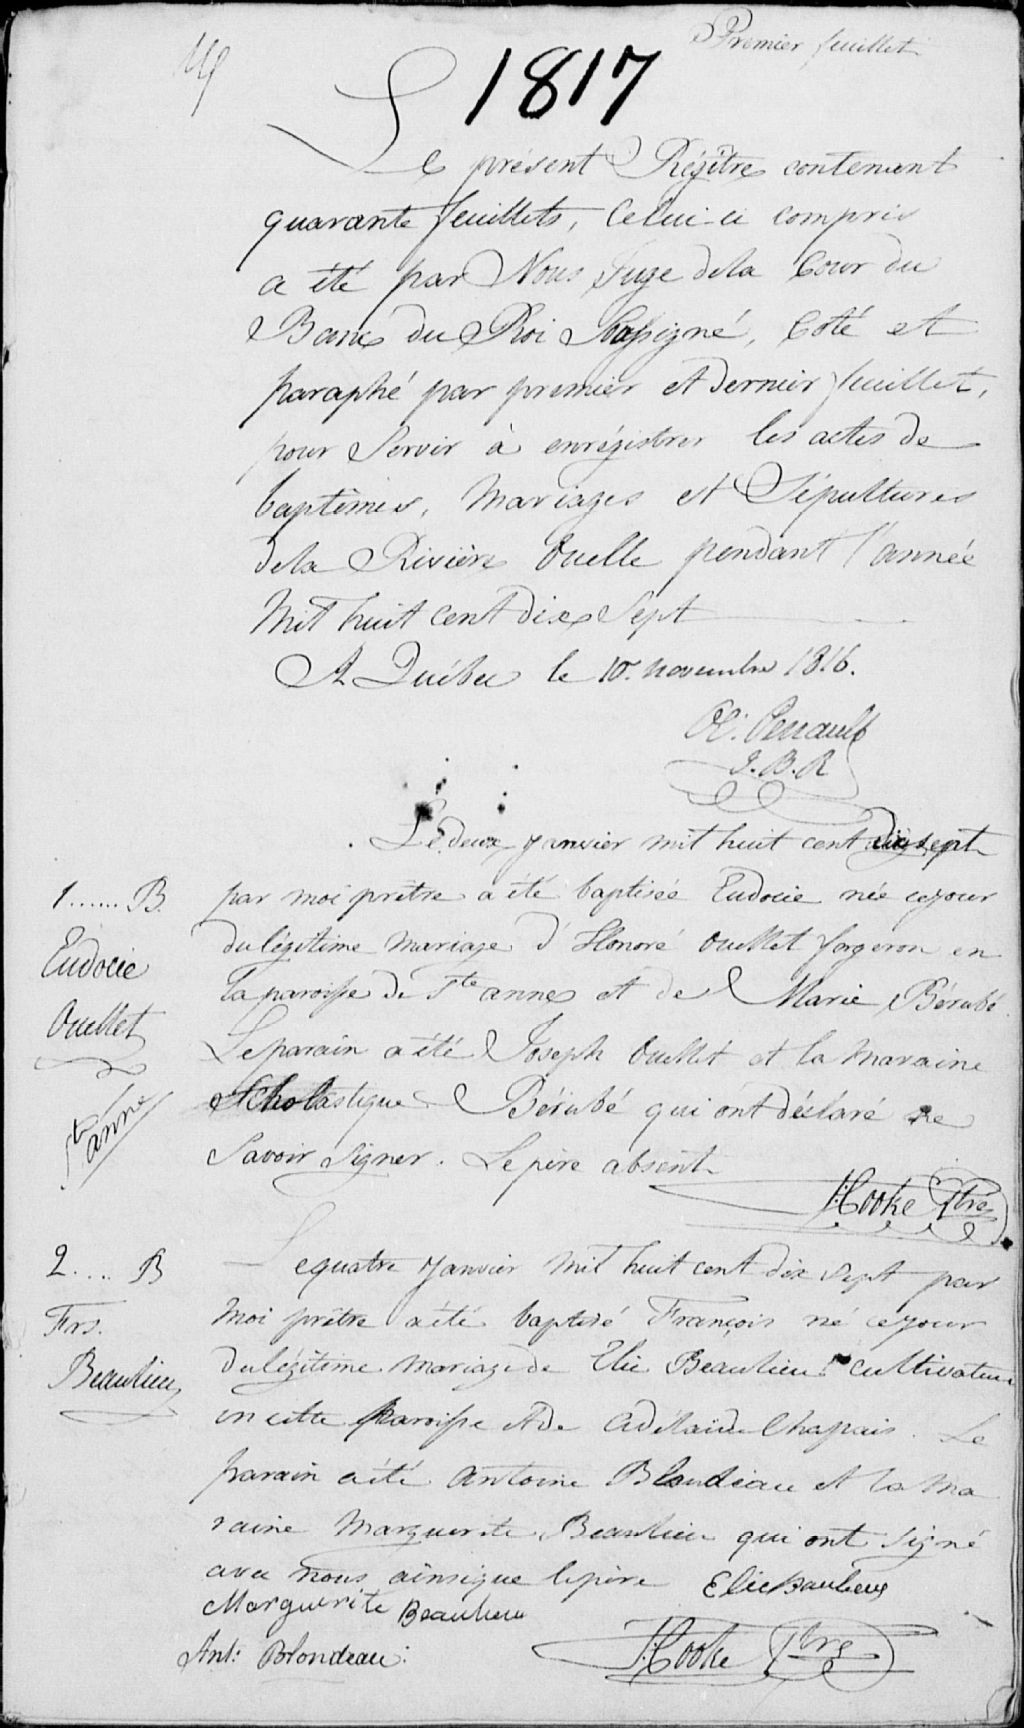 Premier feuillet
1817
Le présent Régître contenant
quarante feuillets, Celui-ci compris
a été par Nous Juge dela Cour du
Banc du Roi Soussigné, Coté et
paraphé par premier et dernier feuillet,
pour Servir à enrégistrer les actes de
baptêmes, Mariages et Sépultures
dela Rivière Ouelle pendant l'année
Mil huit cent dix Sept
A Québec le 10. novembre 1816.
Ol. Perrault
J. B. R
Le deux janvier mil huit cent dix sept
1...... B. par moi prêtre a été baptisée Eudocie née cejour
Eudocie
Ouellet
Ste anne
du légitime mariage d'Honoré Ouellet forgeron en
la paroisse de Ste anne et de Marie Bérubé
Le parain a été Joseph Ouellet et la Maraine
Scholastique Bérubé qui ont déclaré ne
Savoir Signer. Le père absent
J: Cooke Ptre
2.... B
Frs.
Beaulieu
Le quatre janvier mil huit cent dix sept par
Moi prêtre a été baptisé François né cejour
du légitime mariage de Elie Beaulieu cultivateur
en cette paroisse et de Adélaïde Chapais. Le
parain a été Antoine Blondeau et la ma
raine Marguerite Beaulieu qui ont signé
avec nous ainsique lepère Elie Baulieux
Marguerite Beaulieu
Ant: Blondeau:
J: Cooke Ptre